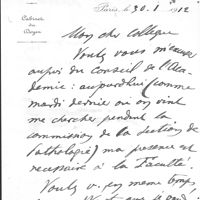 Paris, le 30. 1 1912
Cabinet
du
Doyen
Mon cher collègue
Voulez vous m'excuser
auprès du Conseil de l'Aca
démie : aujourd'hui (comme
mardi dernier où on vint
me chercher pendant la
commission de la section de
Pathologie) ma présence est
nécessaire à la Faculté.
Voulez v. en même temps